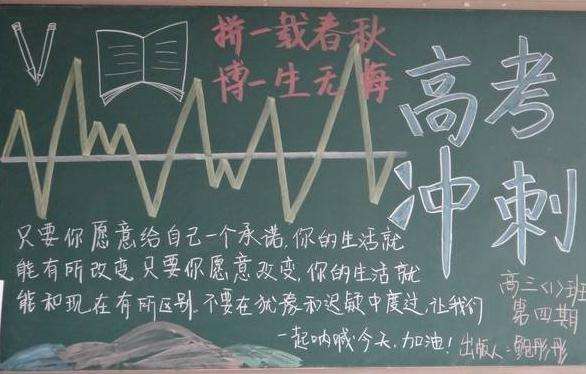 拼一载春秋
博一生无悔
高考
冲刺
只要你愿意给自己一个承诺,你的生活就
能有所改变,只要你愿意改变,你的生活就
能和现在有所区别.不要在犹豫和迟疑中度过,让我们
一起呐喊:今天,加油!
高三(1)班
第四期
出版人:鲍彤彤